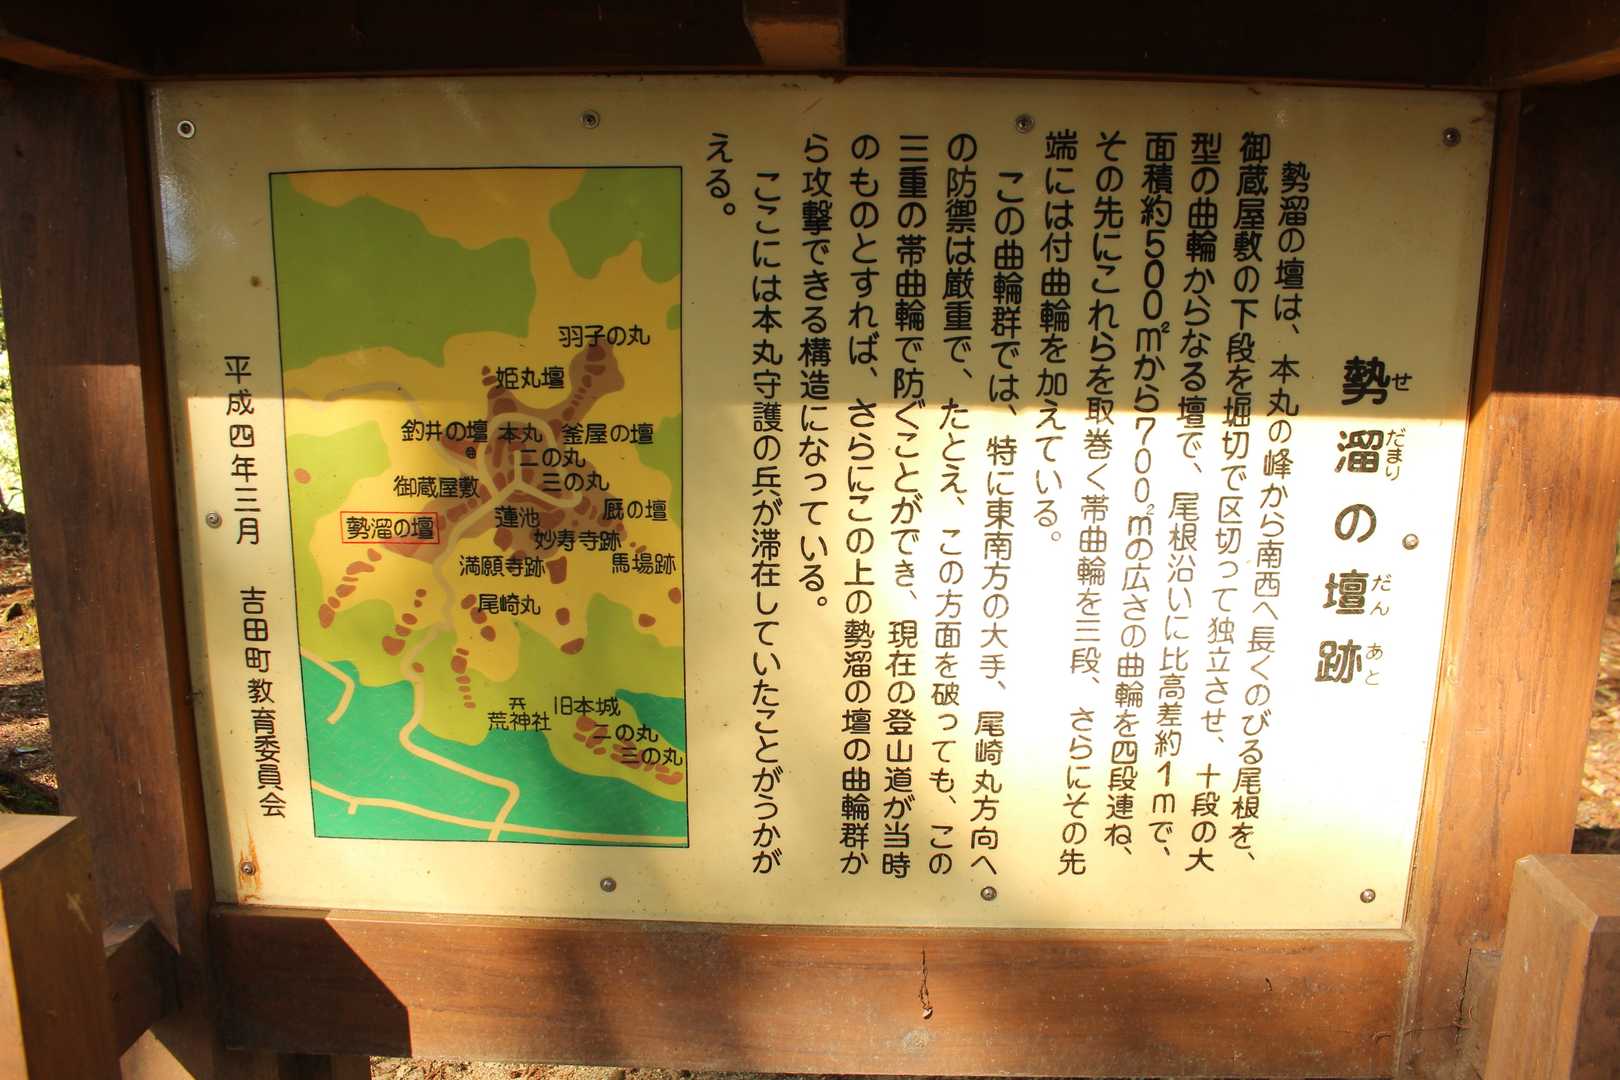 勢溜の壇跡
せ だまり だん あと
勢溜の壇は、本丸の峰から南西へ長くのびる尾根を、
御蔵屋敷の下段を堀切で区切って独立させ、十段の大
型の曲輪からなる壇で、尾根沿いに比高差約1mで、
面積約500㎡から700㎡の広さの曲輪を四段連ね、
その先にこれらを取巻く帯曲輪を三段、さらにその先
端には付曲輪を加えている。
この曲輪群では、特に東南方の大手、尾崎丸方向へ
の防禦は厳重で、たとえ、この方面を破っても、この
三重の帯曲輪で防ぐことができ、現在の登山道が当時
のものとすれば、さらにこの上の勢溜の壇の曲輪群か
ら攻撃できる構造になっている。
ここには本丸守護の兵が滞在していたことがうかが
える。
羽子の丸
姫丸壇
釣井の壇
本丸
釜屋の壇
二の丸
三の丸
御蔵屋敷
厩の壇
蓮池
勢溜の壇
妙寿寺跡
満願寺跡
馬場跡
尾崎丸
荒神社
旧本城
二の丸
三の丸
平成四年三月 吉田町教育委員会